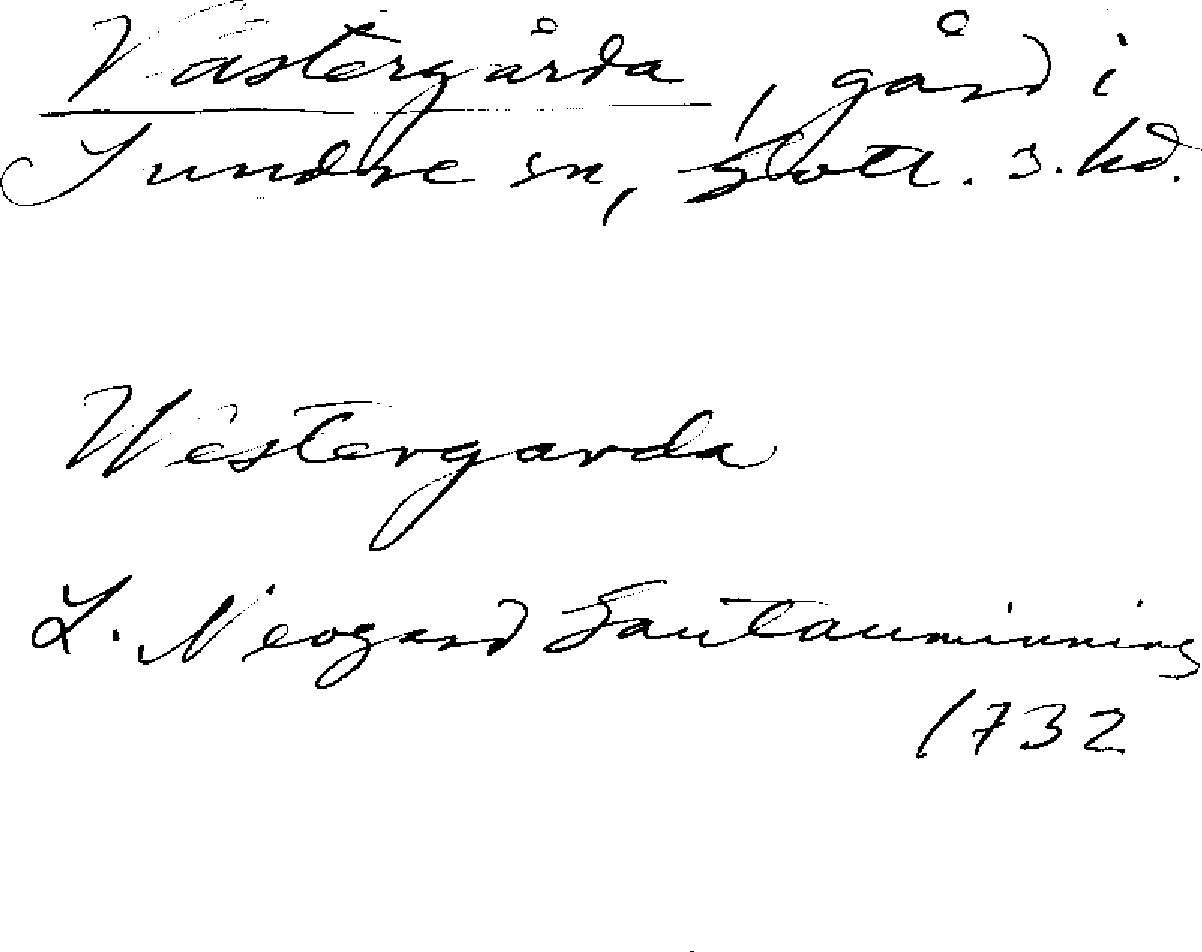 Västergårda, gård i
Sundre sn, Gotl. s. hd.
Westergarda
L. Neogard Gautauminning
1732